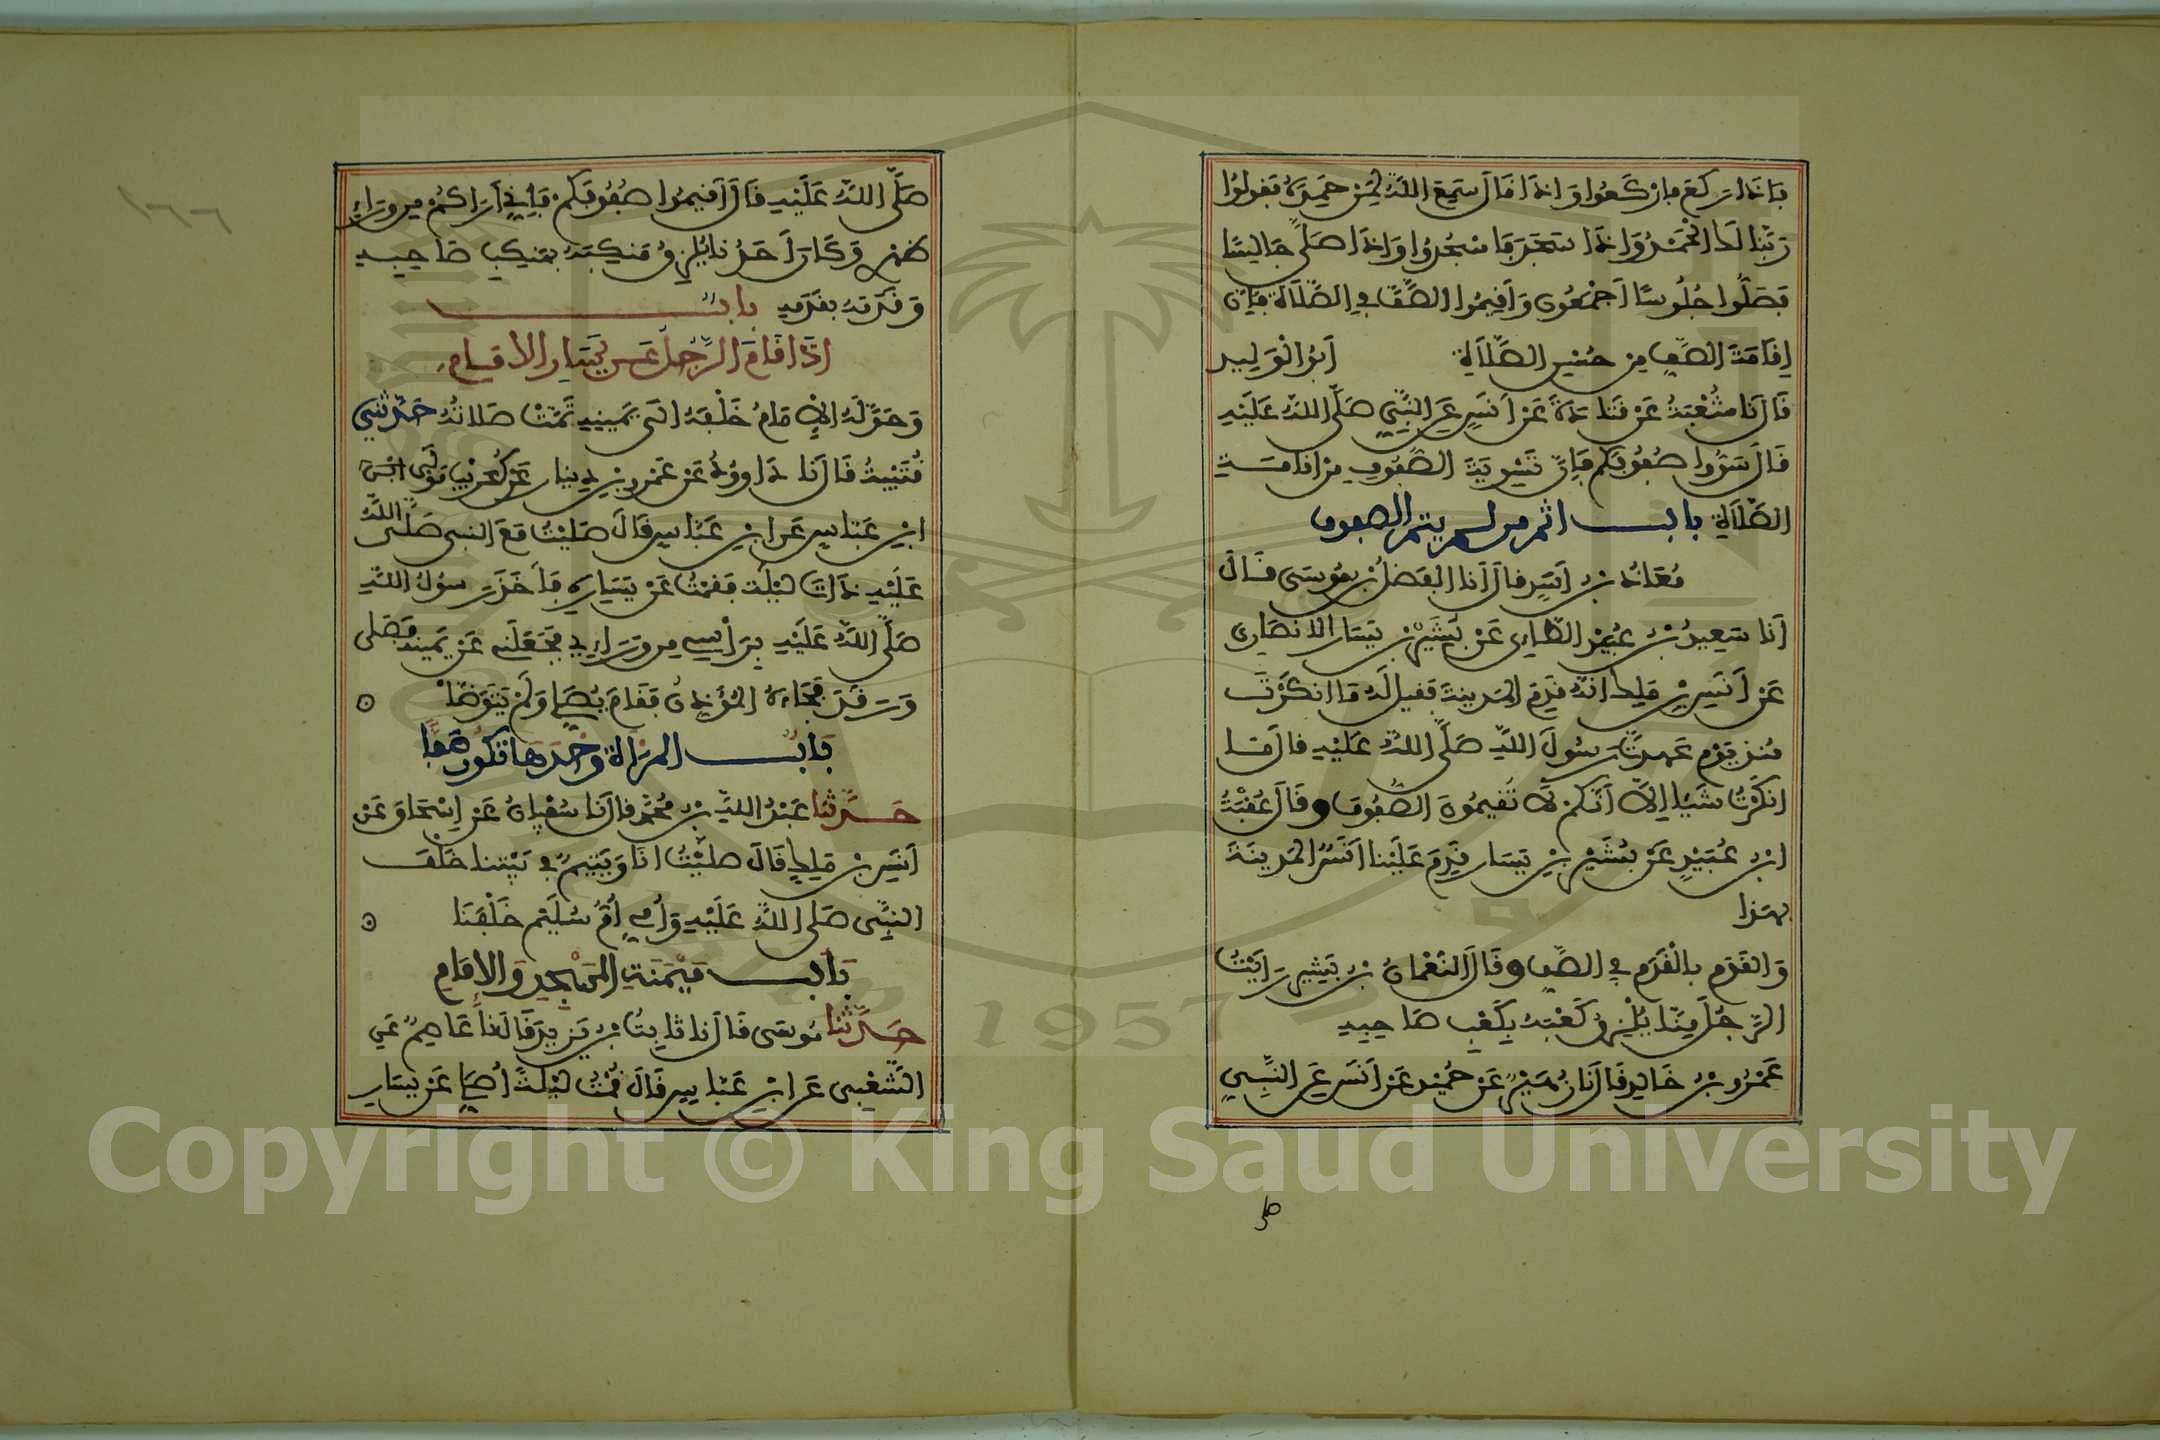 فإذا ركع فاركعوا وإذا قال سمع الله لمن حمده فقولوا
ربنا لك الحمد وإذا سجد فاسجدوا وإذا صلى جالسا
فصلوا جلوسا أجمعون وأقيموا الصف في الصلاة فإن
إقامة الصف من حسن الصلاة أبو الوليد
قال أنا شعبة عن قتادة عن أنس عن النبي صلى الله عليه
قال سووا صفوفكم فإن تسوية الصفوف من إقامة
الصلاة باب اثم من لم يتم الصفوف
معاذ بن أسد قال أنا الفضل بن موسى قال
أنا سعيد بن عبيد الطاي عن بشير بن يسار الانصاري
عن أنس بن ملك انه قدم المدينة فقيل له ما انكرت
منذ يوم عهدت رسول الله صلى الله عليه قال ما
انكرت شيئا إلا أنكم لا تقيمون الصفوف وقال عقبة
ابن عبيد عن بشير بن يسار قدم علينا أنس المدينة
بهذا
والقدم بالقدم في الصف وقال النعمان بن بشير رايت
الرجل منا يلزق كعبه بكعب صاحبه
عمرو بن خالد قال أنا زهير عن حميد عن أنس عن النبي
صلى الله عليه قال أقيموا صفوفكم فإني أراكم من وراء
ظهري وكان أحدنا يلزق منكبه بمنكب صاحبه
وقدمه بقدمه باب
إذا قام الرجل عن يسار الامام
وحوله الإمام خلفه الى يمينه تمت صلاته حدثني
قتيبة قال أنا داوود عن عمرو بن دينار عن كريب مولى ابن
ابن عباس عن ابن عباس قال صليت مع النبي صلى الله
عليه ذات ليلة فقمت عن يساره فأخذ رسول الله
صلى الله عليه برأسي من وراءي فجعلني عن يمينه فصلى
ورقد فجاءه المؤذن فقام يصلي ولم يتوضأ
باب المرأة وحدها تكون صفا
حدثنا عبد الله بن محمد قال أنا سفيان عن إسحاق عن
أنس بن ملك قال صليت انا ويتيم في بيتنا خلف
النبي صلى الله عليه وأمي أم سليم خلفنا
باب ميمنة المسجد والإمام
حدثنا موسى قال أنا ثابت بن يزيد قال أنا عاصم عن
الشعبي عن ابن عباس قال قمت ليلة أصلي عن يسار
١٦٦
Copyright © King Saud University
1957